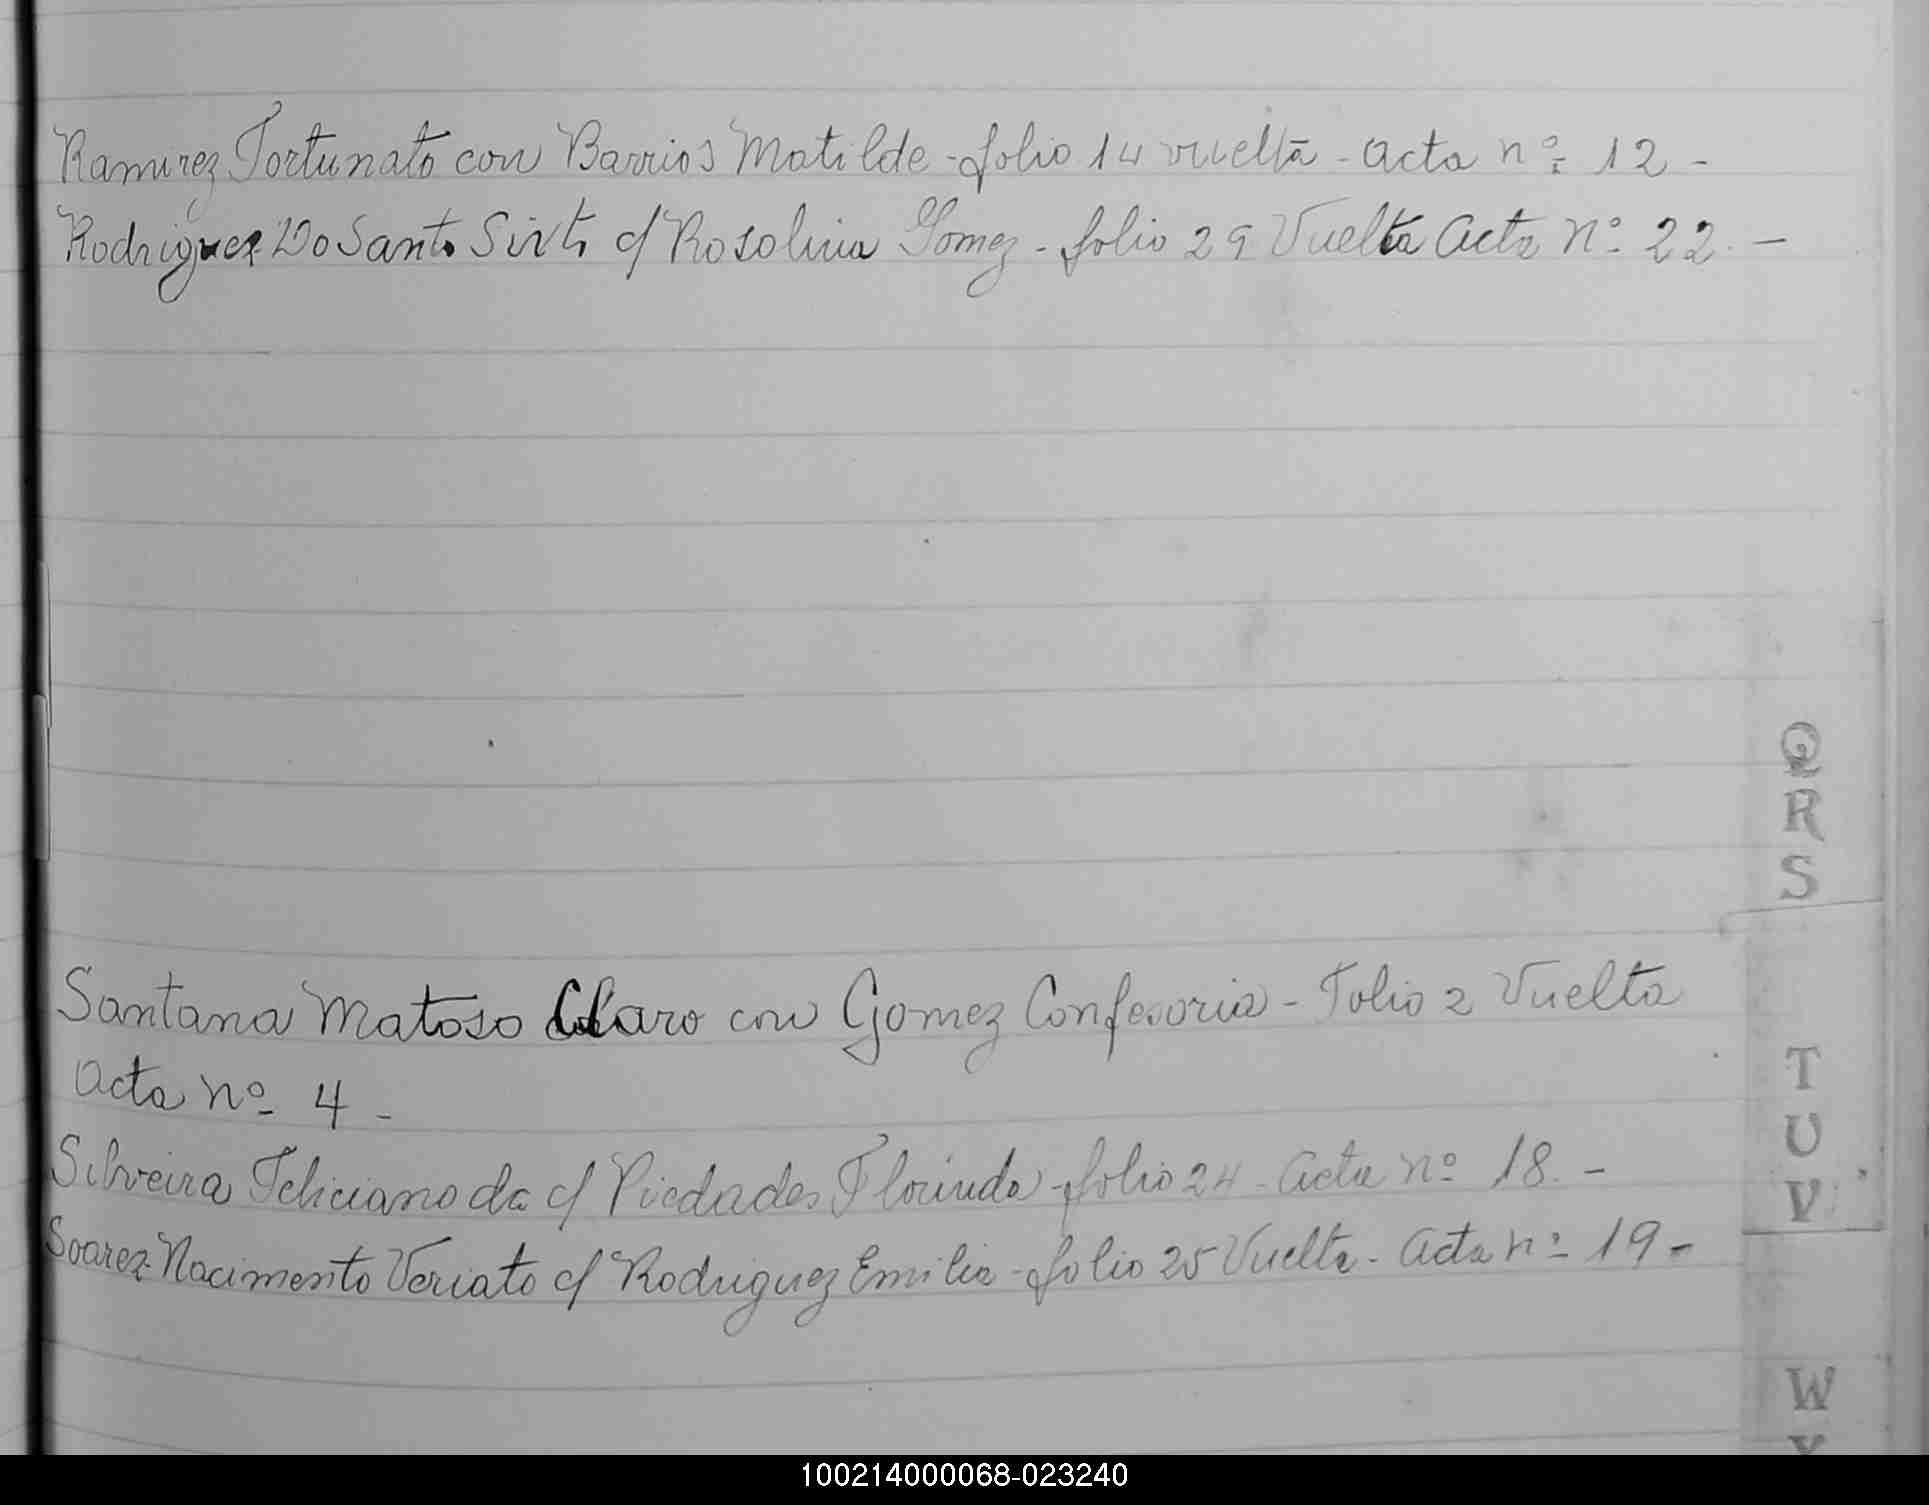 Ramirez Fortunato con Barrios Matilde - folio 14 vuelta - Acta nº 12 -
Rodriguez Do Santo Sixto c/ Rosolina Gomez - folio 29 Vuelta Acta Nº 22. -
Q
R
S
Santana Matoso Claro con Gomez Confesoria - Folio 2 Vuelta
Acta nº 4 -
Silveira Feliciano da c/ Piedades Florinda - folio 24 - Acta Nº 18. -
Soarez Nacimento Veriato c/ Rodriguez Emilia - folio 25 Vuelta - Acta nº 19 -
T
U
V
W
100214000068-023240